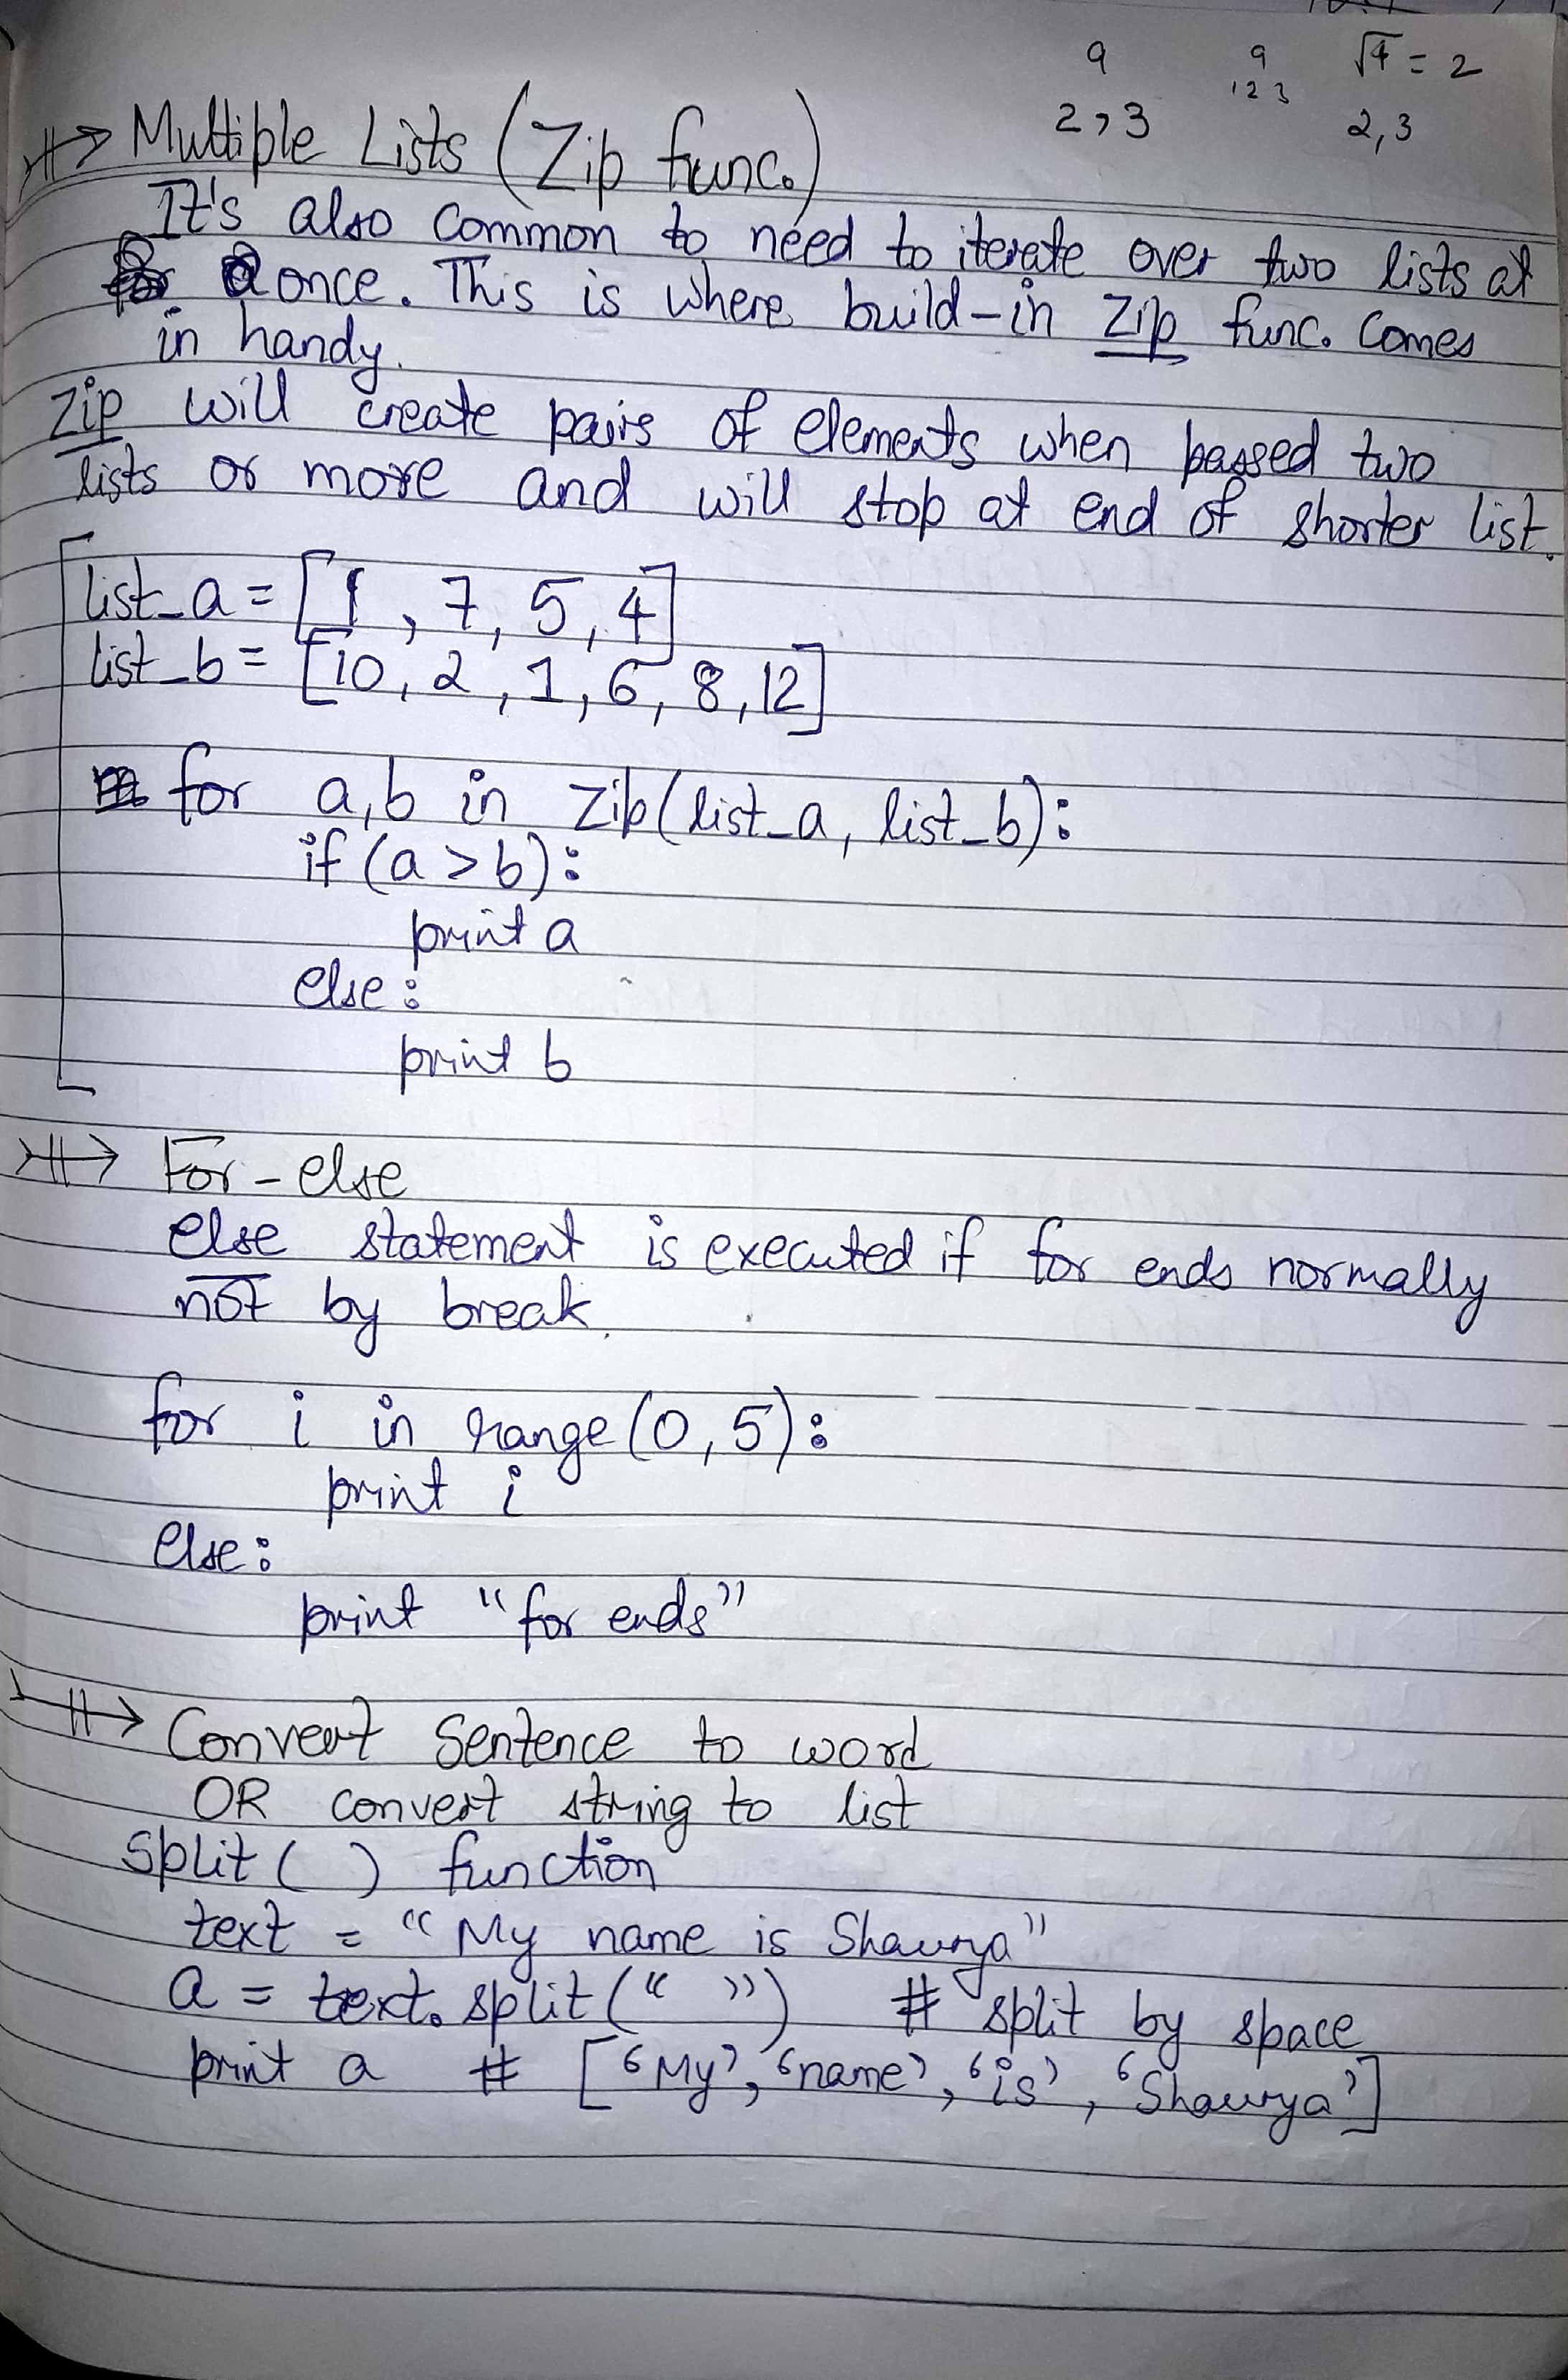 9 9 √4 = 2
2,3 1 2 3 2,3
Multiple Lists (Zip func.)
It's also common to need to iterate over two lists at
once. This is where build-in Zip func. comes
in handy.
Zip will create pairs of elements when passed two
lists or more and will stop at end of shorter list.
list_a = [1, 7, 5, 4]
list_b = [10, 2, 1, 6, 8, 12]
for a,b in zip(list_a, list_b):
if (a > b):
print a
else:
print b
For-else
else statement is executed if for ends normally
not by break.
for i in range(0, 5):
print i
else:
print "for ends"
Convert Sentence to word
OR convert string to list
Split( ) function
text = "My name is Shaurya"
a = text.split(" ") # split by space
print a # ['My', 'name', 'is', 'Shaurya']